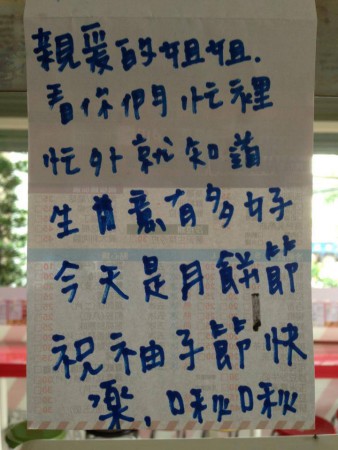 親愛的姐姐.
看你們忙裡
忙外就知道
生意有多好
今天是月餅節
祝袖子節快
樂,啾啾